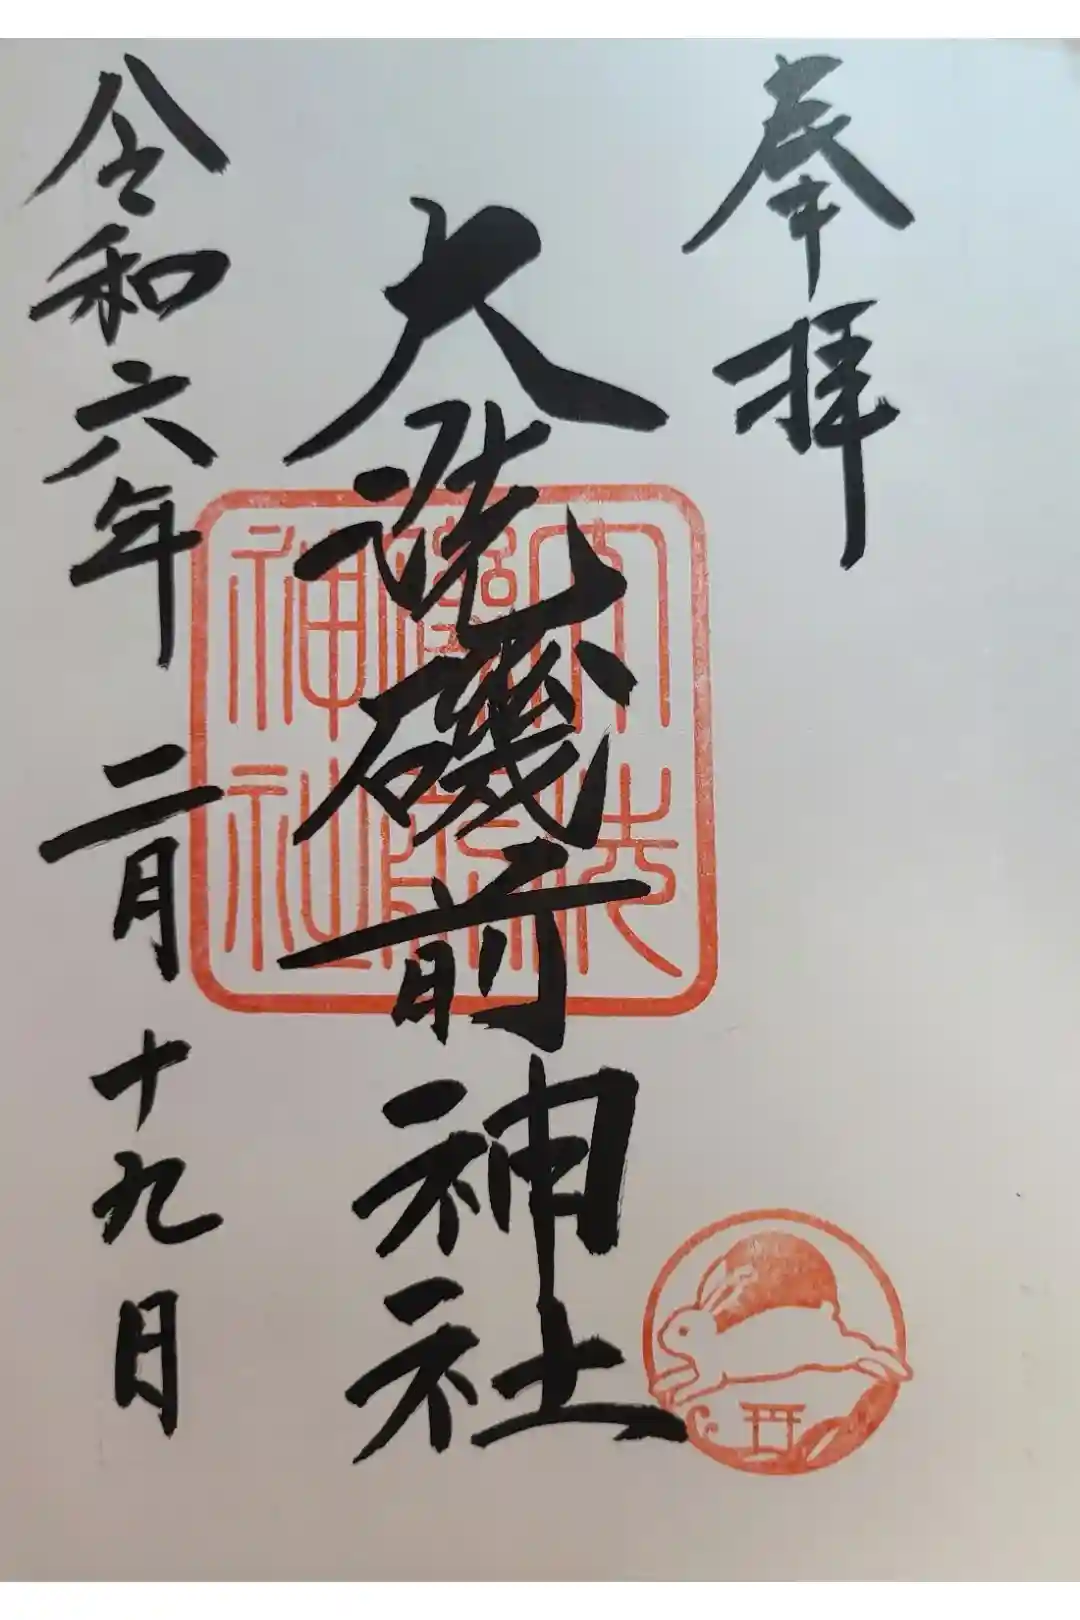 奉拝
大洗磯前神社
令和六年 二月十九日
大洗
磯前
神社